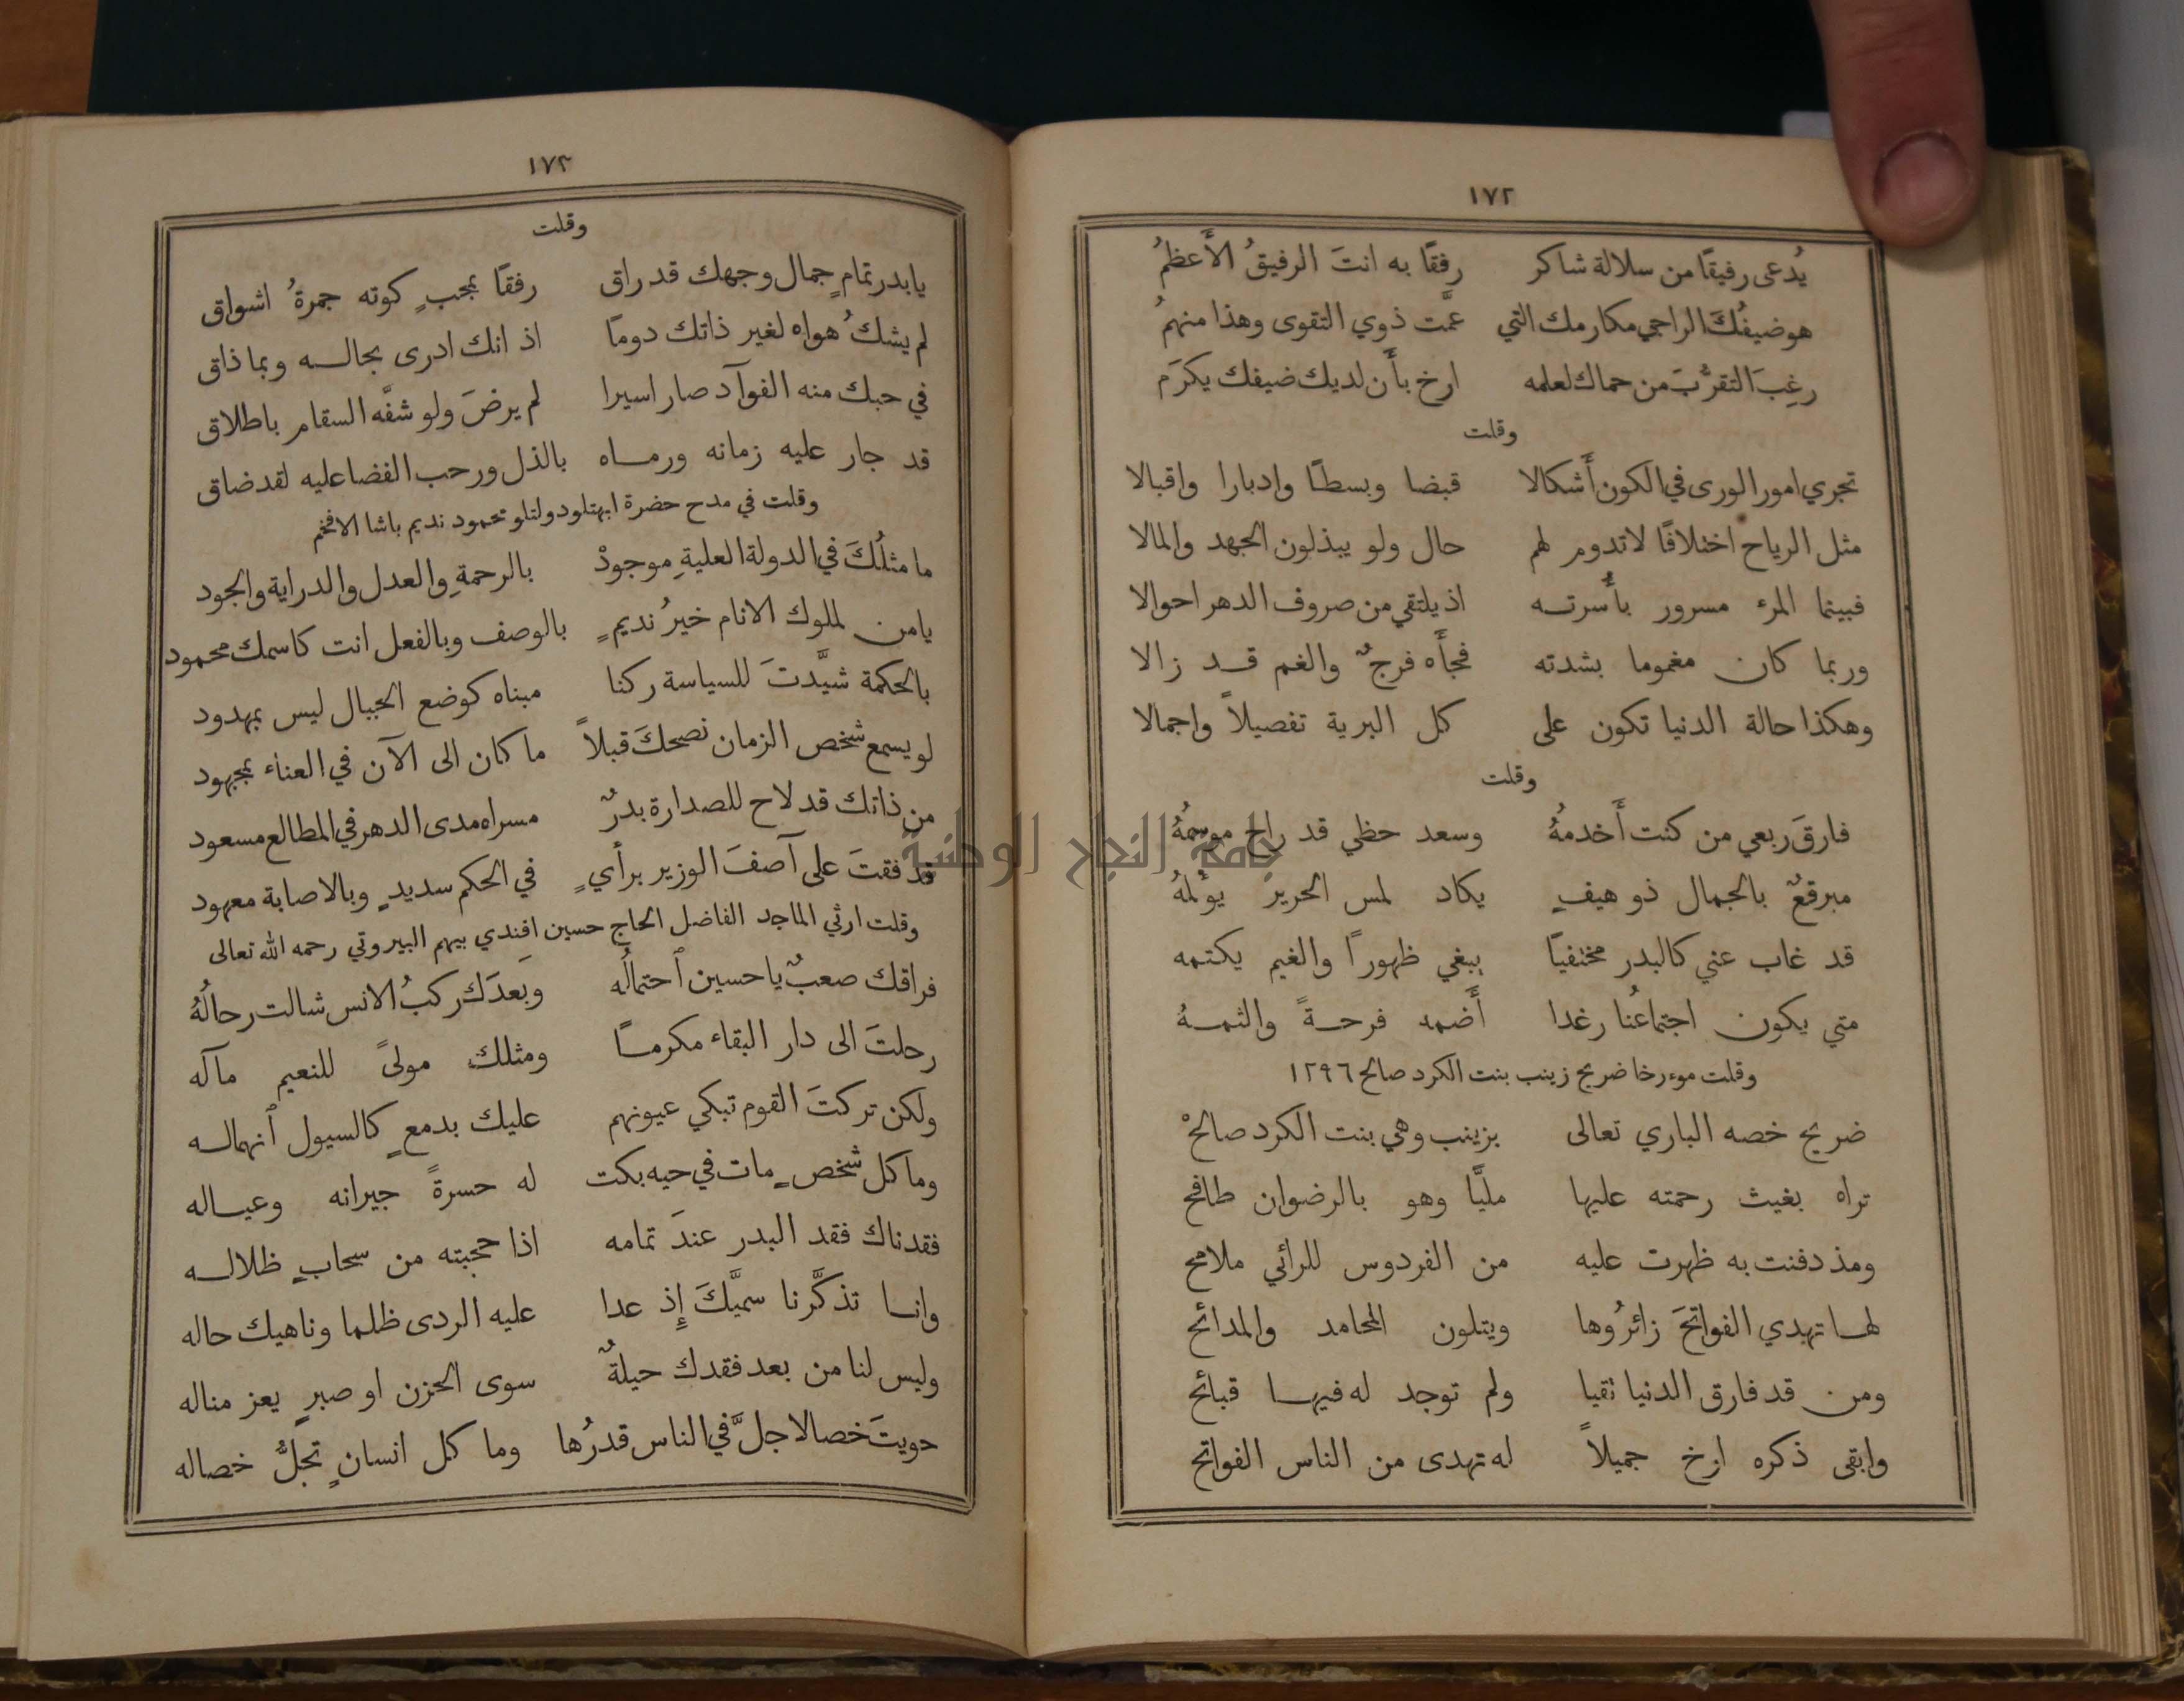 ١٧٢
يُدعى رفيقًا من سلالة شاكر رفقًا به انتَ الرفيقُ الأَعظمُ
هو ضيفُكَ الراجي مكارمك التي عمَّت ذوي التقوى وهذا منهمُ
رغِبَ التقرُّبَ من حماك لعلمه ارخ بأَن لديك ضيفك يكرَم
وقلت
تجري امور الورى في الكون أَشكالا قبضا وبسطًا وادبارا واقبالا
مثل الرياح اختلافًا لاتدوم لهم حال ولو يبذلون الجهد والمالا
فبينما المرء مسرور بأُسرته اذ يلتقي من صروف الدهر احوالا
وربما كان مغموما بشدته فجأَه فرجٌ والغم قد زالا
وهكذا حالة الدنيا تكون على كل البرية تفصيلاً واجمالا
وقلت
فارقَ ربعي من كنت أَخدمهُ وسعد حظي قد راح موسمهُ
مبرقعٌ بالجمال ذو هيفٍ يكاد لمس الحرير يؤلمهُ
قد غاب عني كالبدر مختفيًا يبغي ظهورًا والغيم يكتمه
متي يكون اجتماعُنا رغدا أَضمه فرحةً والثمهُ
وقلت موءرخا ضريح زينب بنت الكرد صالح ١٢٩٦
ضريح خصه الباري تعالى بزينب وهي بنت الكرد صالحْ
تراه بغيث رحمته عليها مليًّا وهو بالرضوان طافح
ومذ دفنت به ظهرت عليه من الفردوس للرائي ملامح
لها تهدي الفواتحَ زائرُوها ويتلون المحامد والمدائح
ومن قد فارق الدنيا نقيا ولم توجد له فيها قبائح
وابقى ذكره ارخ جميلاً له تهدى من الناس الفواتح
١٧٣
وقلت
يابدر تمامٍ جمال وجهك قد راق رفقًا بمحبٍ كوته جمرةُ اشواق
لم يشكُ هواه لغير ذاتك دومًا اذ انك ادرى بحاله وبما ذاق
في حبك منه الفوآد صار اسيرا لم يرضَ ولو شفَّه السقام باطلاق
قد جار عليه زمانه ورماه بالذل ورحب الفضا عليه لقد ضاق
وقلت في مدح حضرة ابهتلو دولتلو محمود نديم باشا الافخم
ما مثلُكَ في الدولة العليةِ موجودْ بالرحمةِ والعدل والدراية والجود
يامن لملوك الانام خيرُ نديمٍ بالوصف وبالفعل انت كاسمك محمود
بالحكمة شيَّدتَ للسياسة ركنا مبناه كوضع الجبال ليس بمهدود
لو يسمع شخص الزمان نصحكَ قبلاً ما كان الى الآن في العناء بمجهود
من ذاتك قد لاح للصدارة بدرٌ مسراه مدى الدهر في المطالع مسعود
قد فقتَ على آصفَ الوزير برأيٍ في الحكم سديدٍ وبالاصابة معهود
وقلت ارثي الماجد الفاضل الحاج حسين افندي بيهم البيروتي رحمه الله تعالى
فراقك صعبٌ يا حسين ٱحتمالُه وبَعدَك ركبُ الانس شالت رحالُهُ
رحلتَ الى دار البقاء مكرمًا ومثلك مولىً للنعيم مآله
ولكن تركتَ القوم تبكي عيونهم عليك بدمعٍ كالسيول ٱنهماله
وما كل شخصٍ مات في حيه بكت له حسرةً جيرانه وعياله
فقدناك فقد البدر عندَ تمامه اذا حجبته من سحابٍ ظلاله
وانا تذكَّرنا سميَّكَ إِذ عدا عليه الردى ظلما وناهيك حاله
وليس لنا من بعد فقدك حيلةٌ سوى الحزن او صبرٍ يعز مناله
حويتَ خصالا جلَّ في الناس قدرُها وما كل انسانٍ تجلُّ خصاله
جامعة النجاح الوطنية